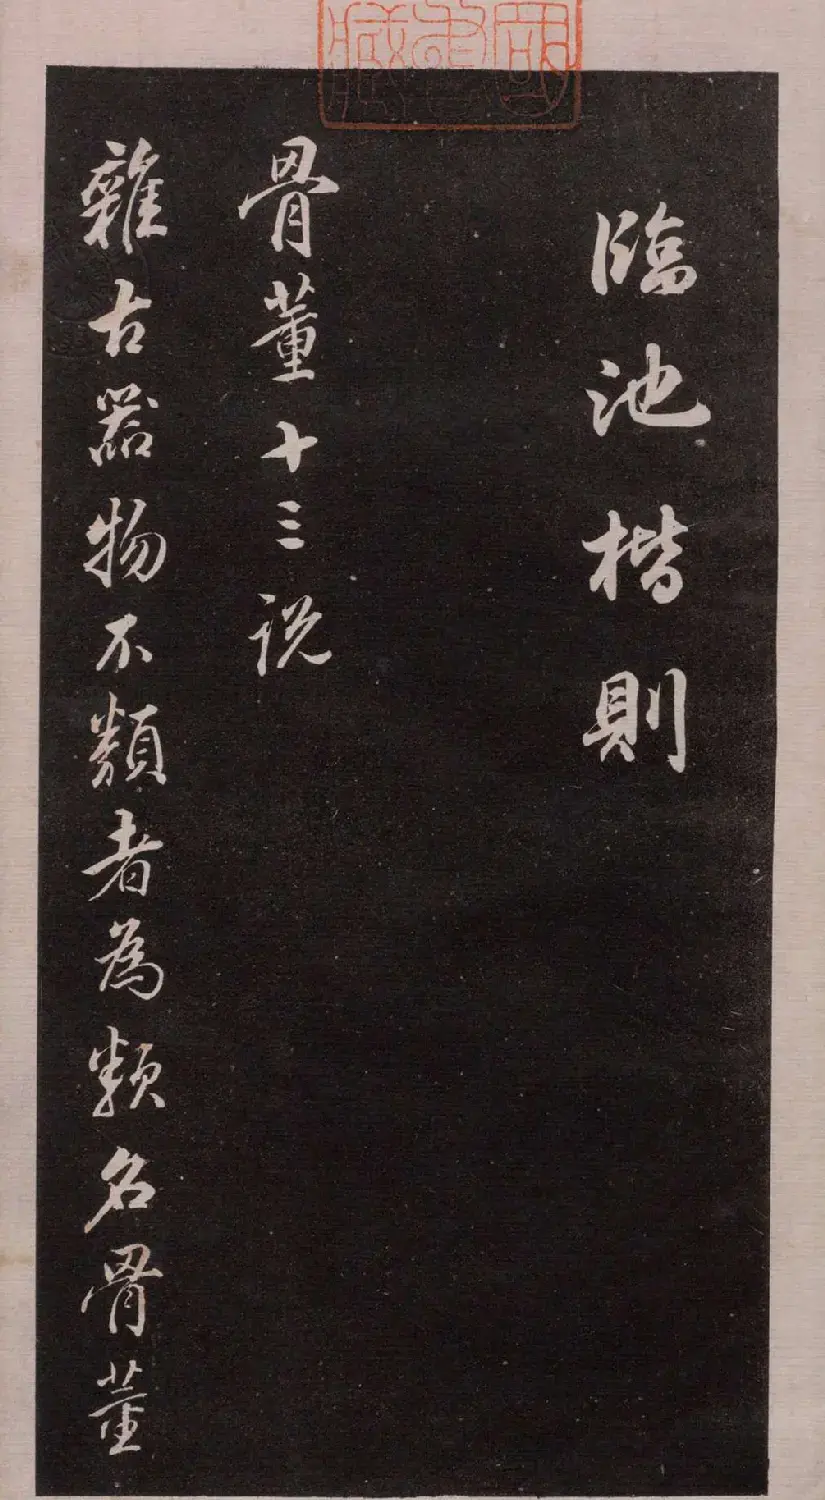 臨池楷則
骨董十三說
雜古器物不類者為類名骨董